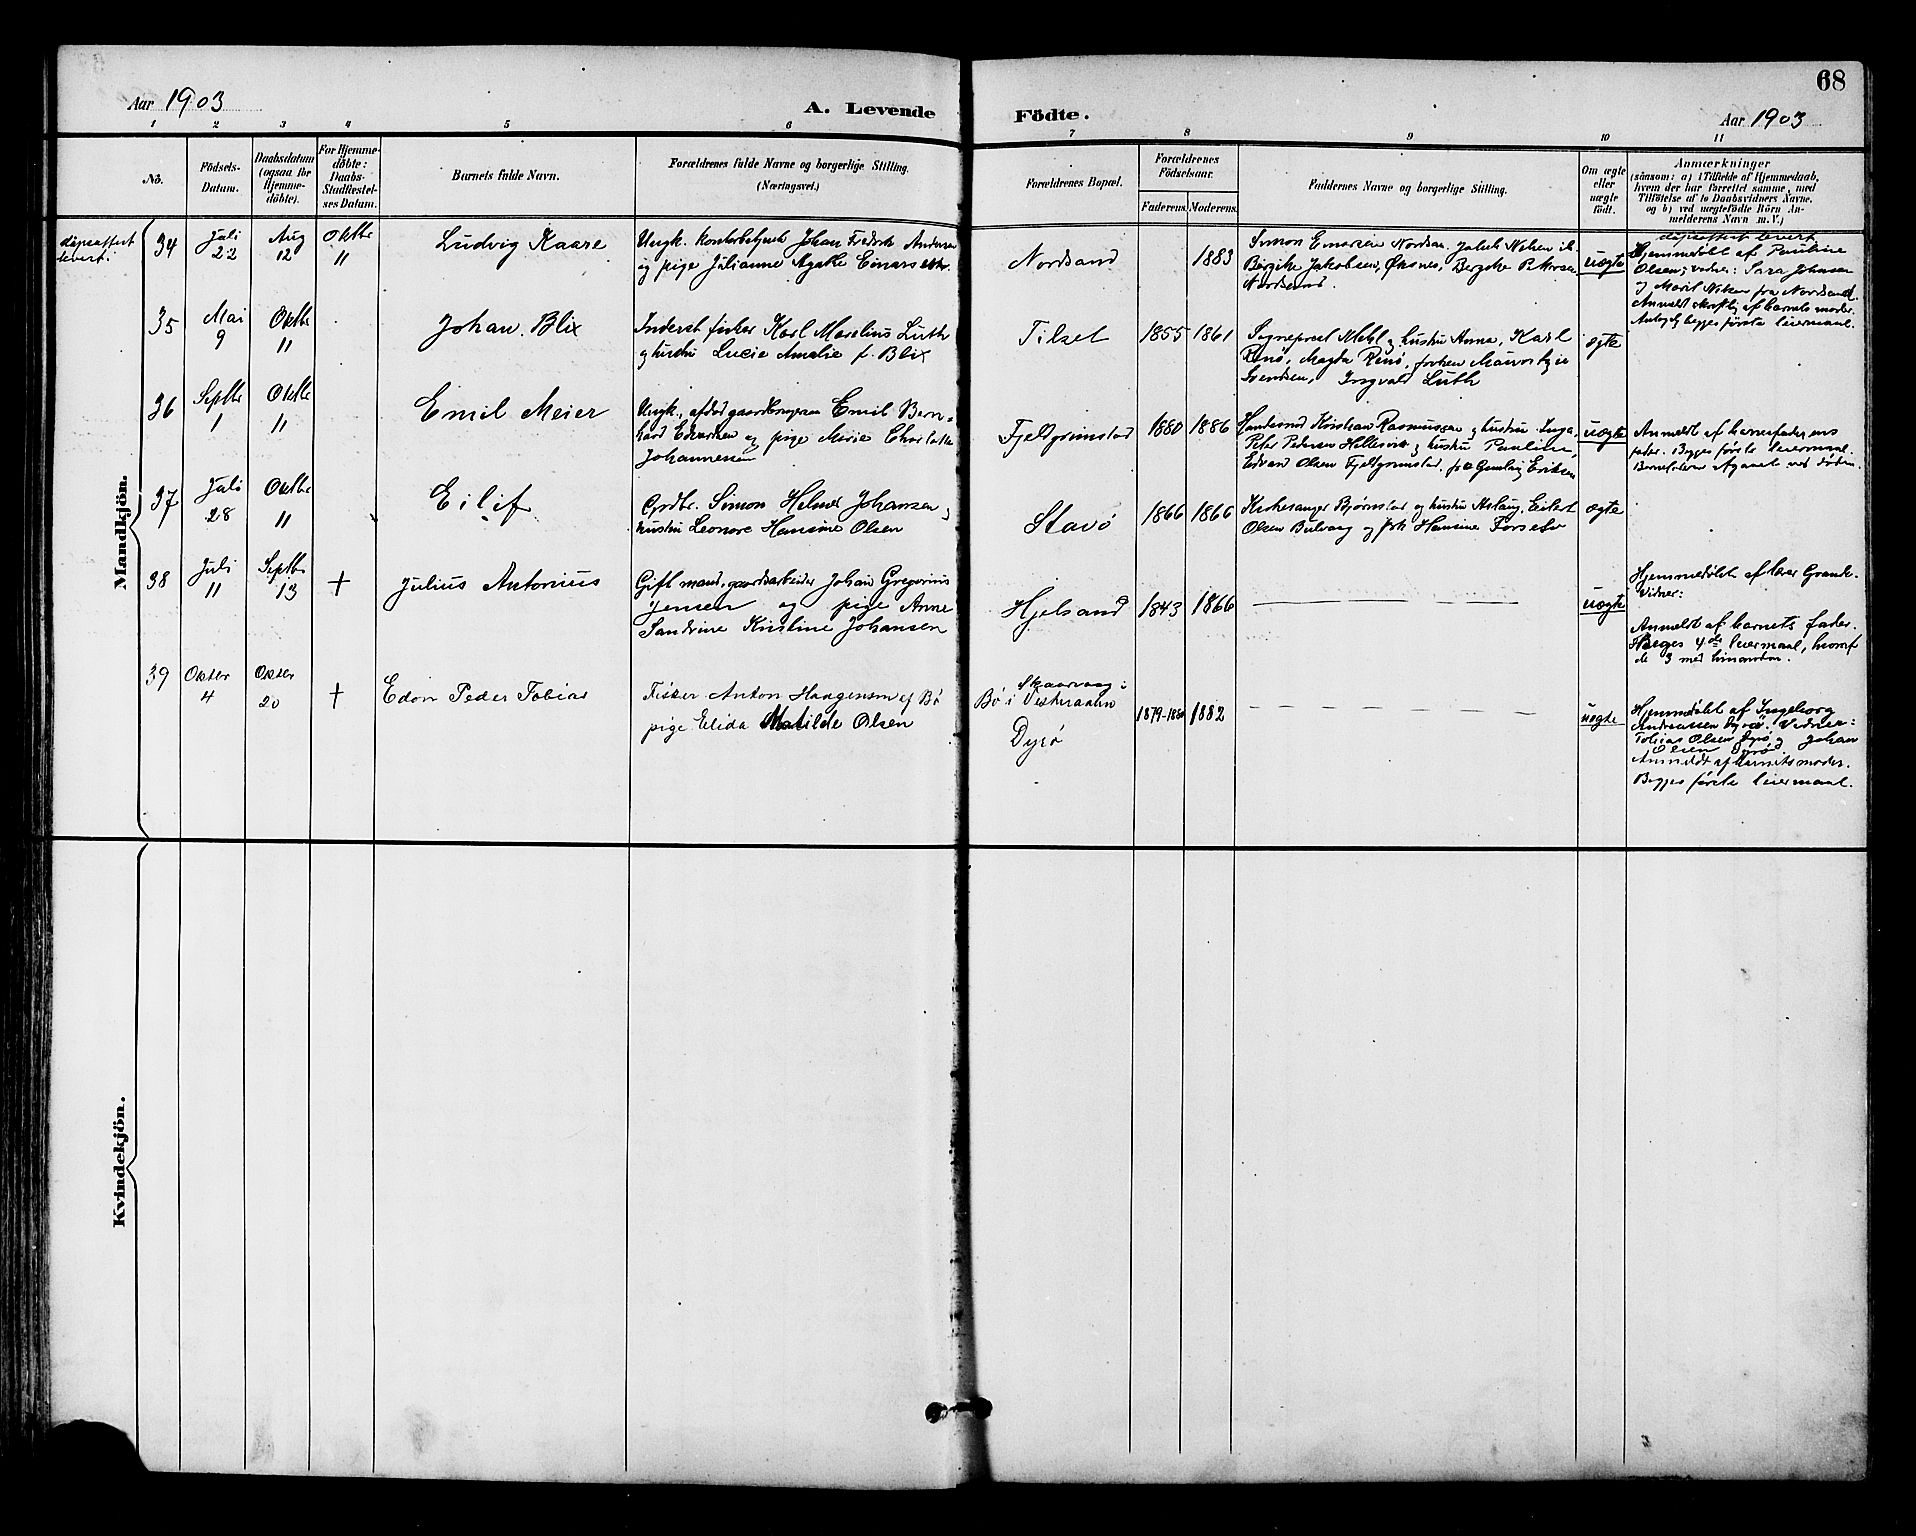 68
Aar 1903
A. Levende
Födte.
Aar 1903
1 2 3 4 5 6 7 8 9 10 11
No.
Födsels-
Datum.
Daabsdatum
(ogsaa for
Hjemme-
döbte).
For Hjemme-
döbte:
Daabs-
Stadfæstel-
ses Datum.
Barnets fulde Navn.
Forældrenes fulde Navne og borgerlige Stilling.
(Næringsvei.)
Forældrenes Bopæl.
Forældrenes
Födselsaar.
Faderens. Moderens.
Faddernes Navne og borgerlige Stilling.
Om ægte
eller
uægte
födt.
Anmærkninger
(saasom: a) i Tilfælde af Hjemmedaab,
hvem der har forrettet samme, med
Tilföielse af to Daabsvidners Navne,
og b) ved uægtefödte Börn An-
melderens Navn m. V.)
Mandkjön.
dåpsattest
levert.
34
Juli
22
Aug
12
Oktbr
11
Ludvig Kaare
Ungk. kontorbetjent Johan Fredrik Andersen
og pige Julianne Agathe Einarsen
Nordsand
1883
Simon Einarsen Nordsan. Jakob Nilsen ib.
Bergitte Jakobsen, Øksnes, Bergitte
Nordsand.
uægte
dåpsattest levert
Hjemmedøbt af Pauline
Olsen; vidner: Sara Johnsen
og Marit Nilsen fra Nordsand.
Anmeldt skriftlig af barnets moder.
begges første leiermaal.
35
Mai
9
Oktbr
11
Johan Blix
Inderst fisker Karl Marelius Luth
og hustru Lucie Amalie f. Blix
Tilset
1855 1861
Sogneprest Mehl og hustru Anna, Karl
Rinø, Magda Rinø, frøken
Svendsen, Ingvald Luth
ægte
36
Septbr
1
Oktbr
11
Emil Meier
Ungk., afdød Emil Bern-
hard Edvardsen og pige Marie Charlotte
Johannessen
Fjeldgrimstad
1880 1886
Kristian Rasmussen og hustru Inga,
Peter Pedersen Hellesvik og hustru Pauline,
Edvard Olsen Fjeldgrimstad, Eriksen
uægte
Anmeldt af barnefaderens
fader. Begges første leiermaal.
Barnefaderen ved døden.
37
Juli
28
Oktbr
11
Eilif
Grdbr. Simon Helmer Johansen og
hustru Leonore Hansine Olsen
Stavø
1866 1866
Kirkesanger Bjørnstad og hustru Aslaug, Eilert
Olsen Bulvaag og Hansine Forseth
ægte
38
Juli
11
Septbr
13
+
Julius Antonius
Gift mand, gaardsarbeider Johan Gregorius
Jensen og pige Anne
Sandrine Kristine Johansen
Hjelsand
1843 1866
uægte
Hjemmedøbt af lærer Grande.
Vidner:
Anmeldt af barnets fader.
Begges 4de leiermaal, hvoraf
de 3 med hinanden.
39
Oktbr
4
Oktbr
20
+
Edon Peder Tobias
Fisker Anton Haagensen af Bø
pige Elida Matilde Olsen
Skaarvaag i
Bø i Vesteraalen
Dyrø
1879-1880 1882
uægte
Hjemmedøbt af Ingeborg
Andreassen Dyrø. Vidner:
Tobias Olsen Dyrø og Johan
Olsen Dyrø
Anmeldt af barnets moder.
Begges første leiermaal.
Kvindekjön.